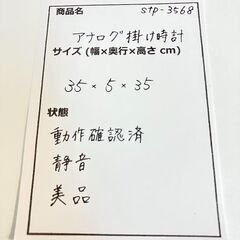 商品名 stp-3568
アナログ掛け時計
サイズ (幅×奥行×高さ cm)
35 × 5 × 35
状態
動作確認済
静音
美品